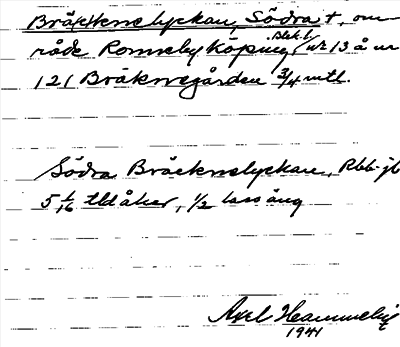 Brä(k)knelyckan, Södra +, om-
råde Ronneby köping, Blek. l. nr 13 å nr
121 Bräknegården 3/4 mtl.
Södra Bräcknelyckan, Rbb-jb
5 1/16 tld åker, 1/2 lass äng
Axel Hammelig
1941